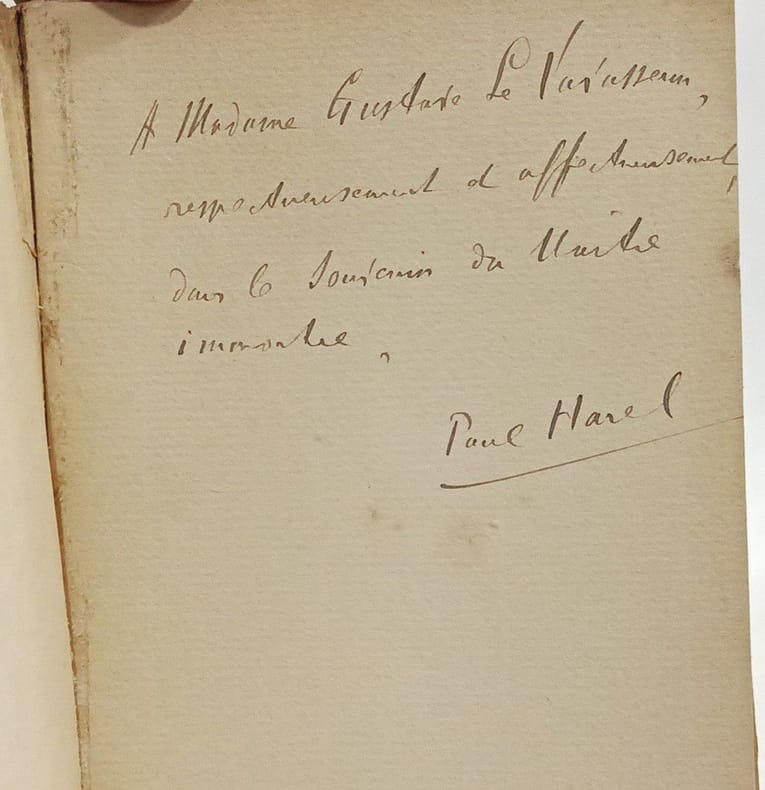 A Madame Gustave Le Vavasseur,
respectueusement et affectueusement,
dans le souvenir du Maître
immortel,
Paul Harel